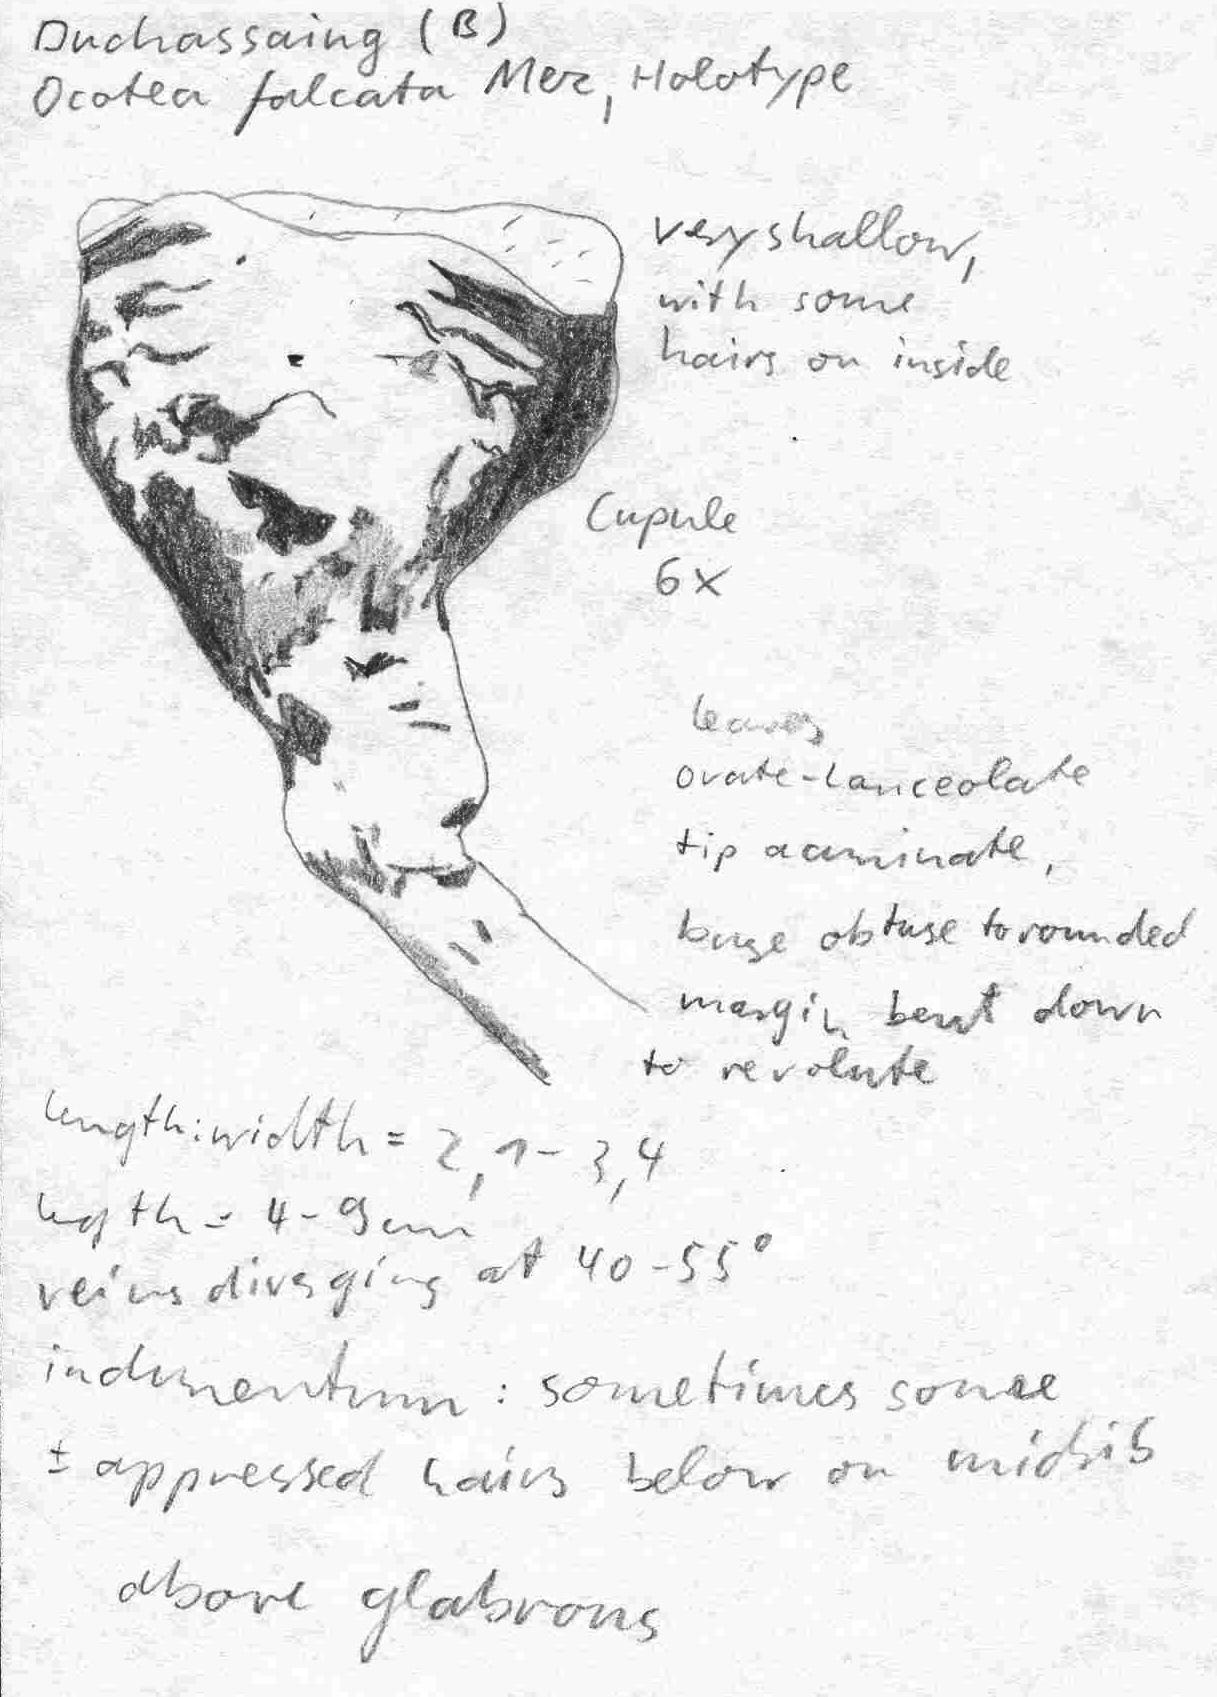 Duchassaing (B)
Ocotea falcata Mez, Holotype
very shallow,
with some
hairs on inside
Cupule
6x
leaves
ovate-lanceolate
tip acuminate,
base obtuse to rounded
margin bent down
to revolute
length:width = 2,1-3,4
legth = 4-9cm
veins diverging at 40-55°
indumentum: sometimes some
± appressed hairs below on midrib
above glabrous